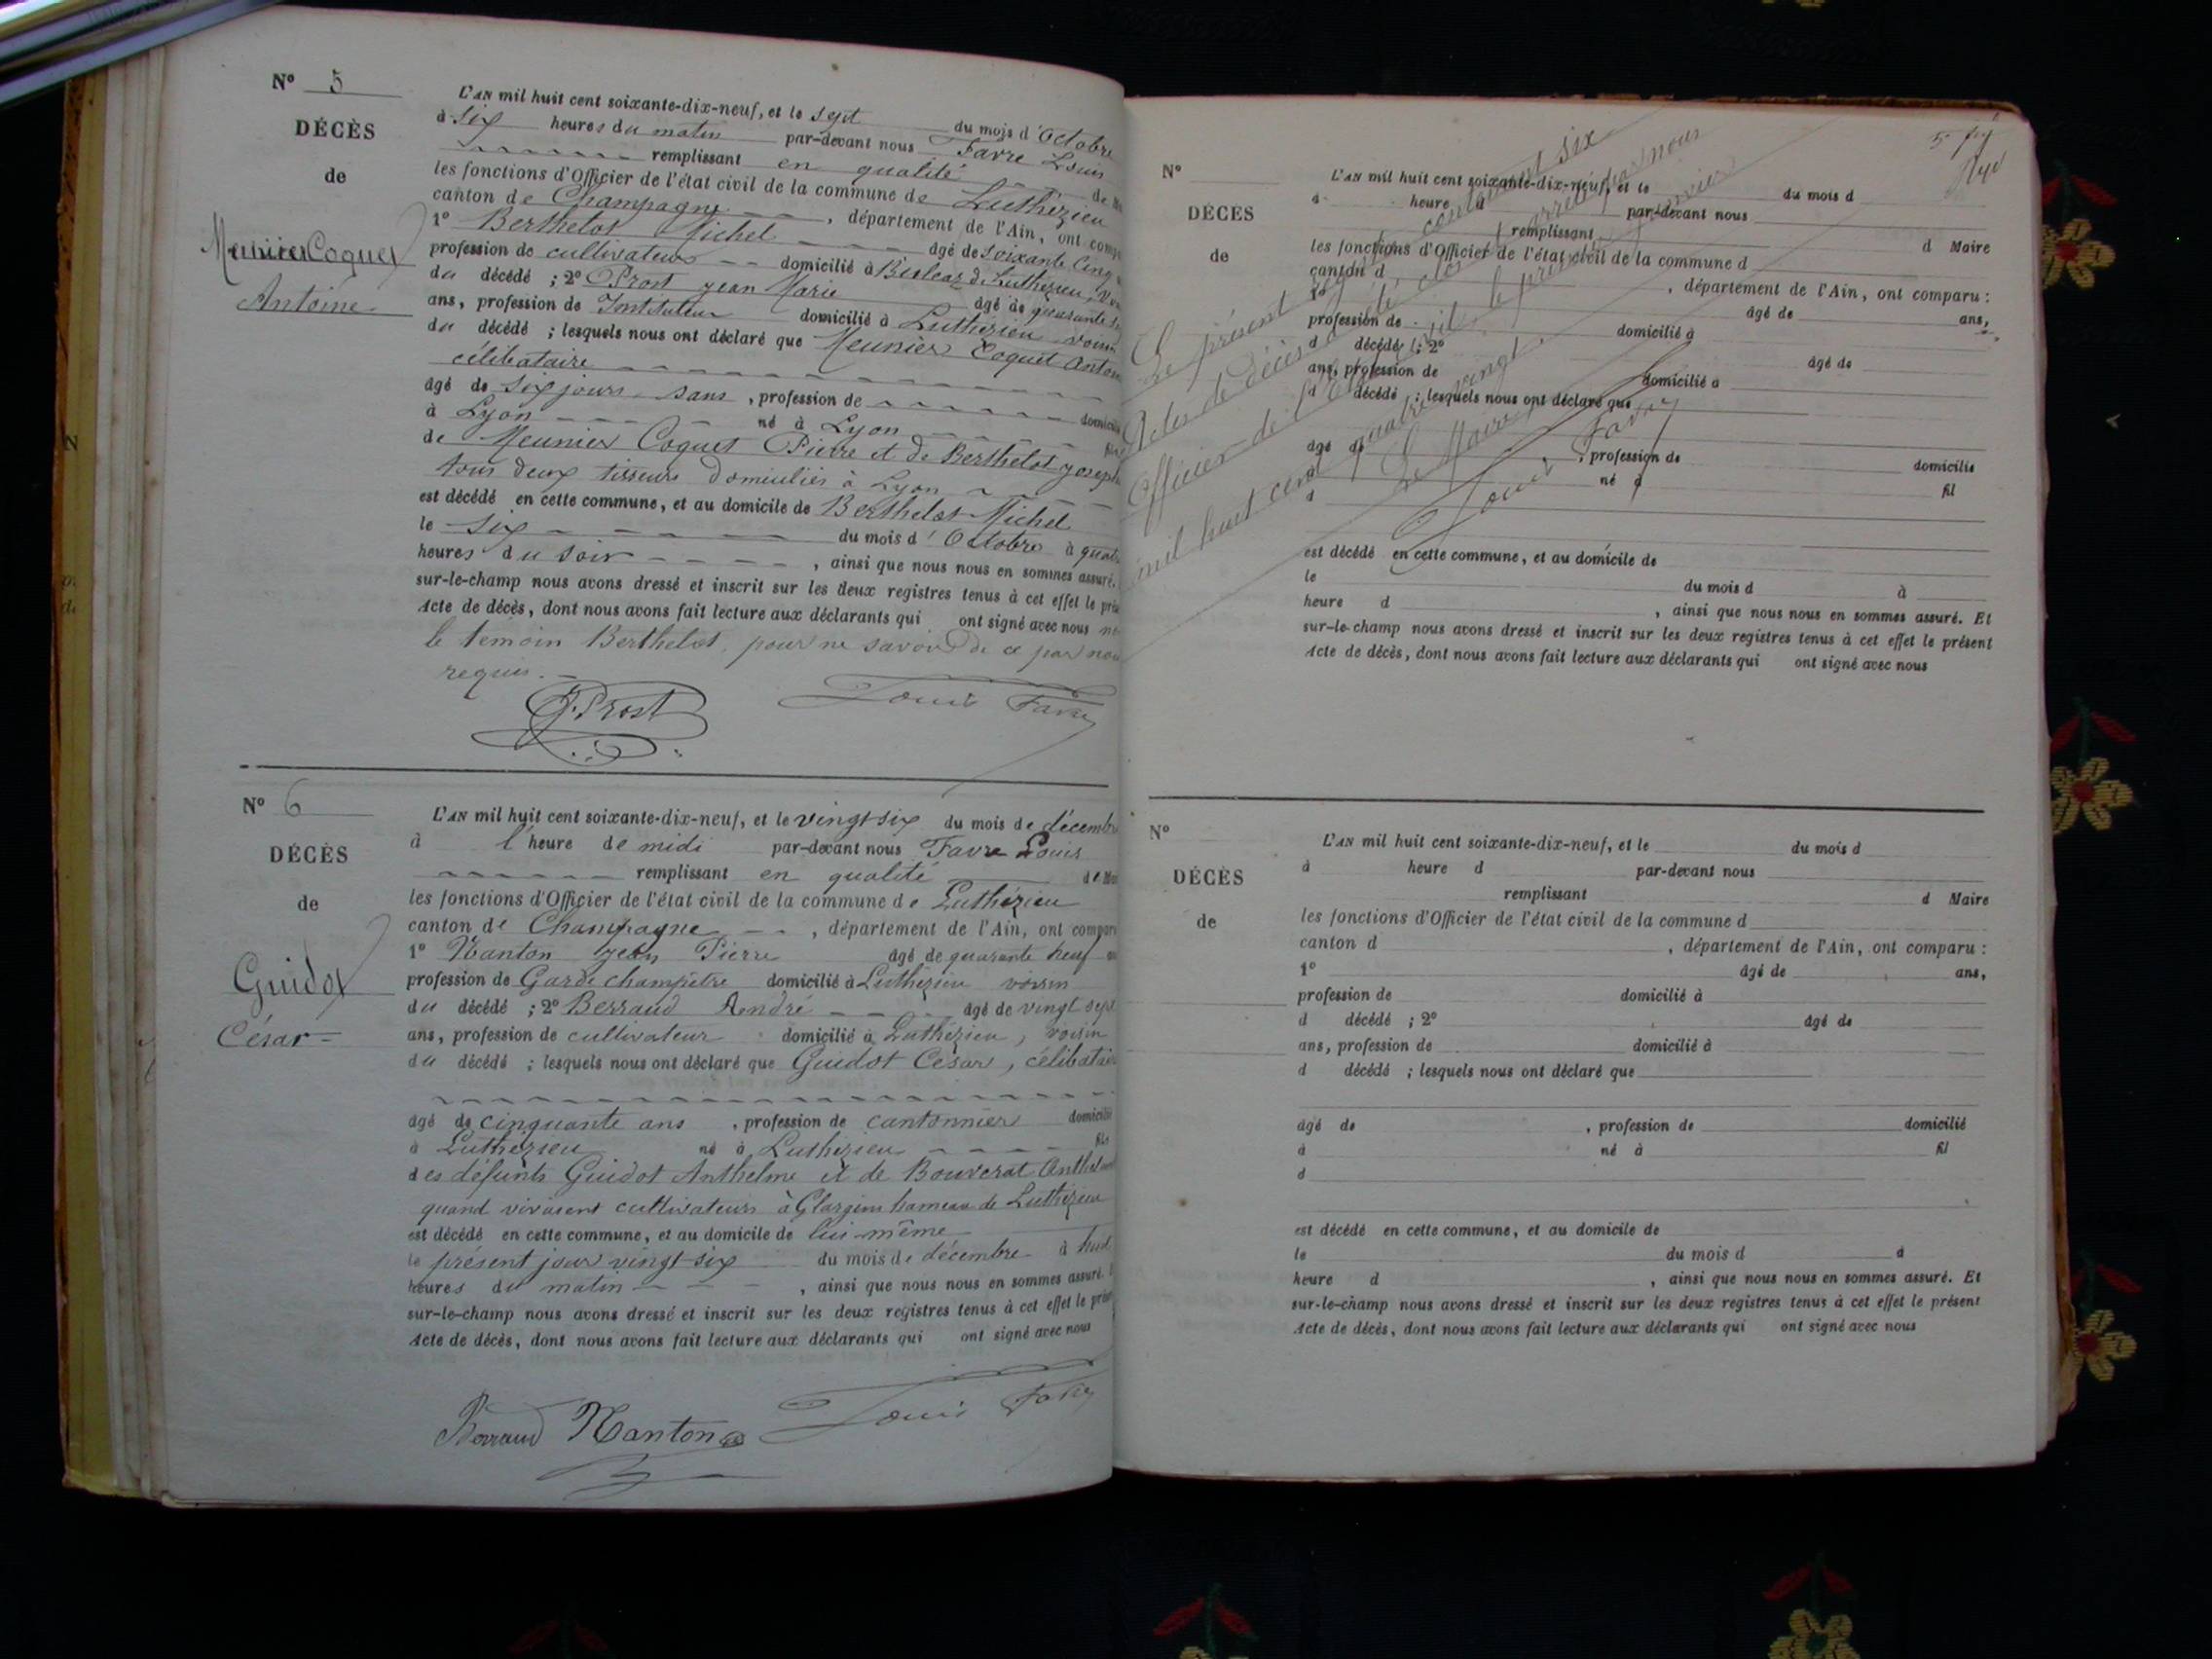 Nº 5
DÉCÈS
de
Meunier Coquet
Antoine
L'AN mil huit cent soixante-dix-neuf, et le sept du mois d'Octobre
à six heures du matin par-devant nous Favre Louis
remplissant en qualité de
les fonctions d'Officier de l'état civil de la commune de Luthézieu
canton de Champagne, département de l'Ain, ont
1º Berthelot Michel âgé de soixante cinq
profession de cultivateur domicilié à de Luthézieu,
du décédé ; 2º Prost jean Marie âgé de quarante
ans, profession de Instituteur domicilié à Luthézieu voisin
du décédé ; lesquels nous ont déclaré que Meunier Coquet
célibataire
âgé de six jours sans, profession de
à Lyon né à Lyon
de Meunier Coquet Pierre et de Berthelot
tous deux tisseurs domiciliés à Lyon
est décédé en cette commune, et au domicile de Berthelot Michel
le six du mois d'Octobre à
heures du soir, ainsi que nous nous en sommes assuré.
sur-le-champ nous avons dressé et inscrit sur les deux registres tenus à cet effet le
Acte de décès, dont nous avons fait lecture aux déclarants qui ont signé avec nous
le temoin Berthelot, pour ne savoir de ce par nous
requis.
J. Prost Louis Favre
Nº 6
DÉCÈS
de
Guidot
César
L'AN mil huit cent soixante-dix-neuf, et le vingt six du mois de décembre
à l'heure de midi par-devant nous Favre Louis
remplissant en qualité de
les fonctions d'Officier de l'état civil de la commune de Luthézieu
canton de Champagne, département de l'Ain, ont
1º Nanton jean Pierre âgé de quarante neuf
profession de Garde champêtre domicilié à Luthézieu voisin
du décédé ; 2º Berraud André âgé de vingt sept
ans, profession de cultivateur domicilié à Luthézieu, voisin
du décédé ; lesquels nous ont déclaré que Guidot César, célibataire
âgé de cinquante ans, profession de cantonnier domicilié
à Luthézieu né à Luthézieu fils
des défunts Guidot Anthelme et de Bouverat
quand vivaient cultivateurs à hameau de Luthézieu
est décédé en cette commune, et au domicile de lui-même
le présent jour vingt six du mois de décembre à huit
heures du matin, ainsi que nous nous en sommes assuré.
sur-le-champ nous avons dressé et inscrit sur les deux registres tenus à cet effet le
Acte de décès, dont nous avons fait lecture aux déclarants qui ont signé avec nous
Berraud Nanton Louis Favre
Nº
DÉCÈS
de
L'AN mil huit cent soixante-dix-neuf, et le du mois d
à heure d par-devant nous
remplissant d Maire
les fonctions d'Officier de l'état civil de la commune d
canton d, département de l'Ain, ont comparu :
1º âgé de ans,
profession de domicilié à
d décédé ; 2º âgé de
ans, profession de domicilié à
d décédé ; lesquels nous ont déclaré que
âgé de, profession de domicilié
à né à fil
d
est décédé en cette commune, et au domicile de
le du mois d à
heure d, ainsi que nous nous en sommes assuré. Et
sur-le-champ nous avons dressé et inscrit sur les deux registres tenus à cet effet le présent
Acte de décès, dont nous avons fait lecture aux déclarants qui ont signé avec nous
Le présent contenant six
Actes de décès a été clos arrêté par nous
Officier de l'état civil le premier janvier
mil huit cent quatre vingt.
Le Maire
Louis Favre
Nº
DÉCÈS
de
L'AN mil huit cent soixante-dix-neuf, et le du mois d
à heure d par-devant nous
remplissant d Maire
les fonctions d'Officier de l'état civil de la commune d
canton d, département de l'Ain, ont comparu :
1º âgé de ans,
profession de domicilié à
d décédé ; 2º âgé de
ans, profession de domicilié à
d décédé ; lesquels nous ont déclaré que
âgé de, profession de domicilié
à né à fil
d
est décédé en cette commune, et au domicile de
le du mois d à
heure d, ainsi que nous nous en sommes assuré. Et
sur-le-champ nous avons dressé et inscrit sur les deux registres tenus à cet effet le présent
Acte de décès, dont nous avons fait lecture aux déclarants qui ont signé avec nous